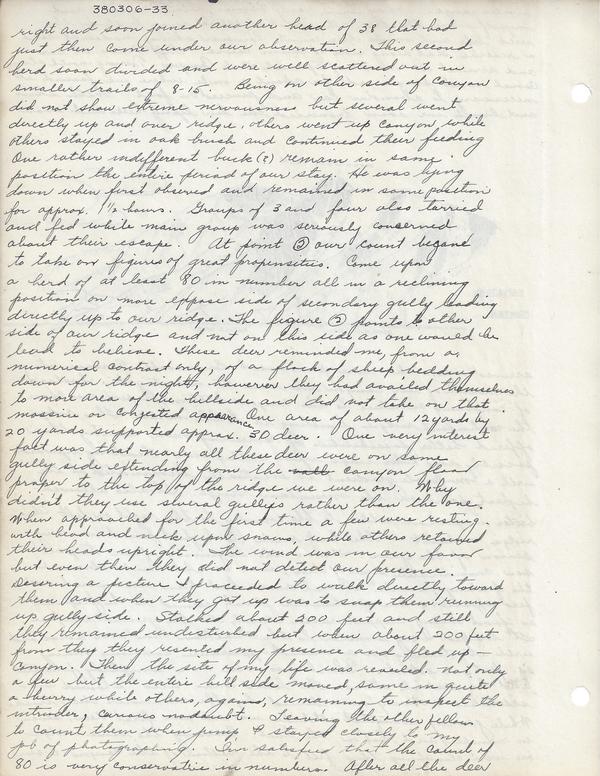 380306-33
right and soon joined another head of 38 that had
just then come under our observation. This second
herd soon divided and were well scattered out in
smaller trails of 8-15. Being on other side of Canyon
did not show extreme nervousness but several went
directly up and over ridge, others went up Canyon while
others stayed in oak brush and continued their feeding
One rather indifferent buck (?) remain in same
position the entire period of our stay. He was lying
down when first observed and remained in same position
for approx. 1½ hours. Groups of 3 and four also tarried
and fed while main group was seriously concerned
about their escape. At point ② our count began
to take on figures of great propensities. Come upon
a herd of at least 80 in number all in a reclining
position on more oppose side of secondary gully leading
directly up to our ridge. The figure ② points to other
side of our ridge and not on this side as one would be
lead to believe. These deer reminded me, from a
numerical contrast only, of a flock of sheep bedding
down for the night, however they had availed themselves
to more area of the hillside and did not take on that
massive or congested appearance. One area of about 12 yards by
20 yards supported approx. 30 deer. One very interest
fact was that nearly all these deer were on same
gully side extending from the canyon floor
proper to the top of the ridge we were on. Why
didn't they use several gullys rather than the one.
When approached for the first time a few were resting
with head and neck upon snow, while others retained
their heads upright. The wind was in our favor
but even then they did not detect our presence.
Desering a picture I proceeded to walk directly toward
them and when they got up was to snap them running
up gully side. Stalked about 200 feet and still
they remained undisturbed but when about 200 feet
from they they resented my presence and fled up-
canyon. Then the site of my life was revealed. Not only
a few but the entire hill side moved, some in quite
a hurry while others, again, remaining to inspect the
intruder, curious nodoubt. Leaving the other fellow
to count them when jump I stayed closely to my
job of photographing. I'm satisfied that the count of
80 is very conservative in numbers. After all the deer